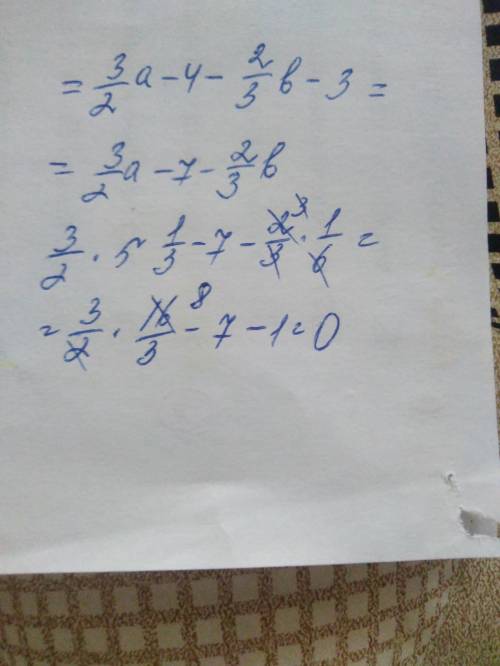 = 3/2 a - 4 - 2/3 b - 3 =
= 3/2 a - 7 - 2/3 b
3/2 · 5 1/3 - 7 - 2/3 ³ · 1/6 =
= 3/2 · 16/3 ⁸ - 7 - 1 = 0